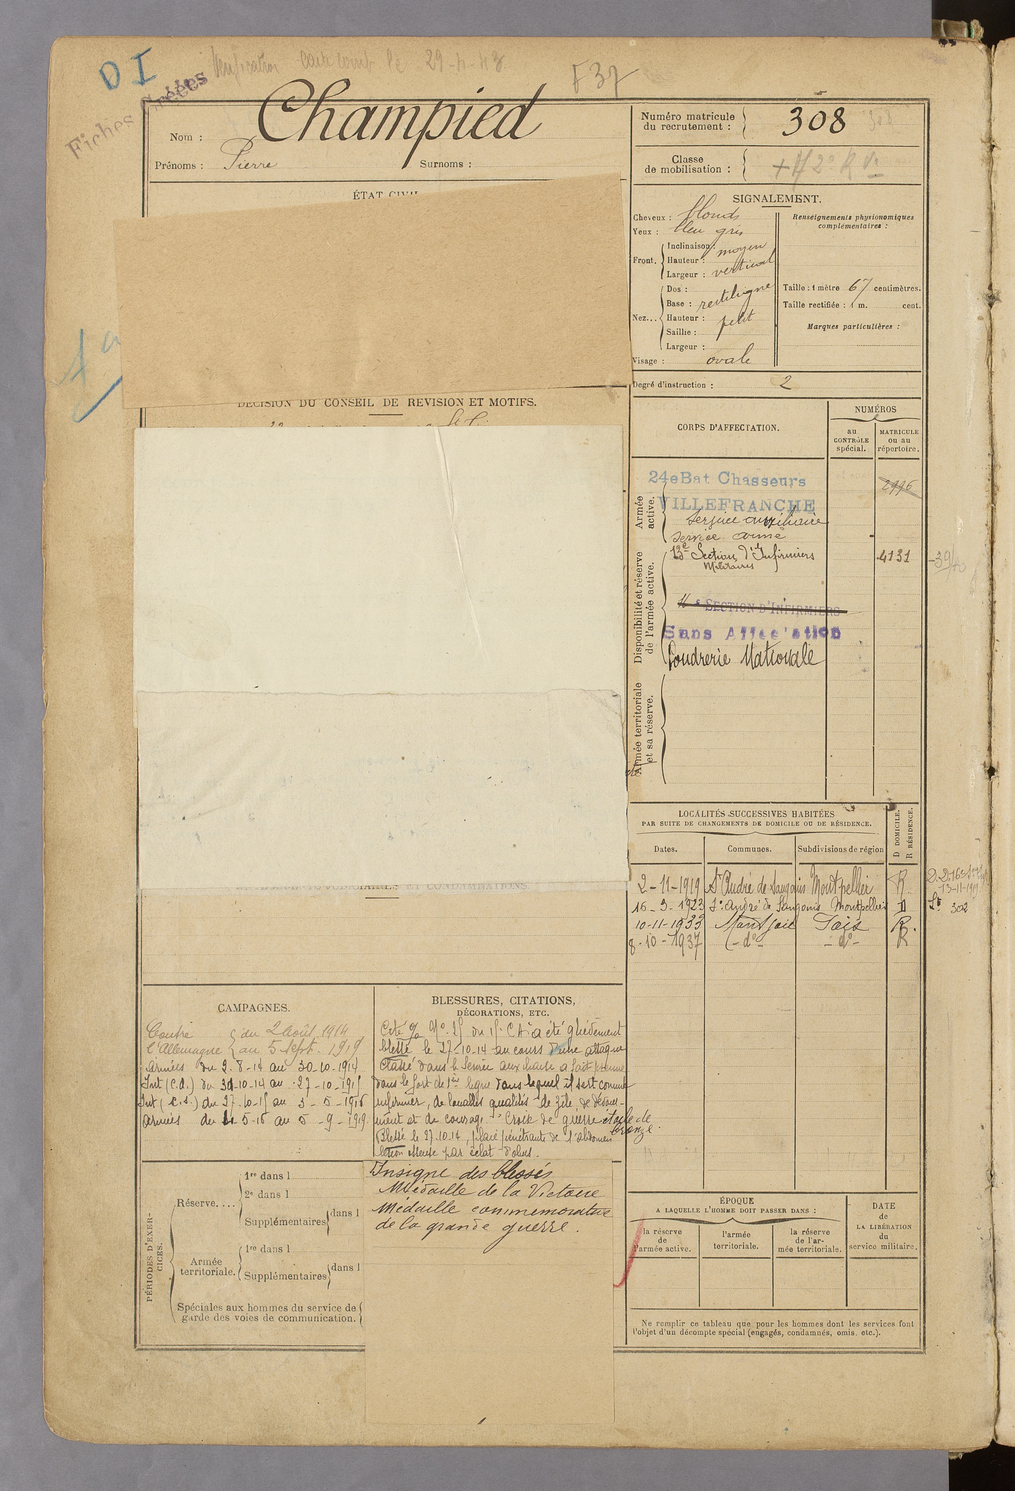 DI
Vérification carte comb le 29-4-48
F37
Fiches Créées
Nom : Champied
Prénoms : Pierre
Surnoms :
Numéro matricule du recrutement : 308
Classe de mobilisation :
ÉTAT CIVIL
SIGNALEMENT.
Cheveux : blonds
Yeux : bleu gris
Front. Inclinaison : moyen
Hauteur : vertical
Largeur :
Nez... Dos :
Base : rectiligne
Hauteur : petit
Saillie :
Largeur :
Visage : ovale
Renseignements physionomiques complémentaires :
Taille : 1 mètre 67 centimètres.
Taille rectifiée : 1 m. cent.
Marques particulières :
Degré d'instruction : 2
DÉCISION DU CONSEIL DE REVISION ET MOTIFS.
CORPS D'AFFECTATION.
NUMÉROS
au CONTRÔLE spécial.
MATRICULE ou au répertoire.
Armée active.
24e Bat Chasseurs
VILLEFRANCHE
2996
Service auxiliaire
Service armé
Disponibilité et réserve de l'armée active.
Section d'Infirmiers
Militaires
4131
SECTION D'INFIRMIERS
Sans Affectation
Poudrerie Nationale
Armée territoriale et sa réserve.
LOCALITÉS SUCCESSIVES HABITÉES
PAR SUITE DE CHANGEMENTS DE DOMICILE OU DE RÉSIDENCE.
D DOMICILE.
R RÉSIDENCE.
Dates.
Communes.
Subdivisions de région
2-11-1919 St André de Sangonis Montpellier R
16-3-1923 St André de Sangonis Montpellier D
10-11-1933 R.
8-10-1937 -do- -do- R
302
ET CONDAMNATIONS.
CAMPAGNES.
Contre l'Allemagne du 2 Août 1914
au 5 Sept. 1919
Armées du 2-8-14 au 30-10-1914
Int (C.D.) du 31-10-14 au 27-10-1915
Int (C.S.) du 27-10-15 au 3-5-1916
Armées du 4-5-16 au 5-9-1919
BLESSURES, CITATIONS,
DÉCORATIONS, ETC.
Cité a été grièvement
blessé le 27-10-14 au cours d'une attaque
Classé dans le service auxiliaire a fait preuve
dans le fort de 1ère ligne dans lequel il sert comme
infirmier, de louables qualités de zèle, de dévoue-
ment et de courage. Croix de guerre étoile de
bronze.
Blessé le 27.10.14, plaie pénétrante de l'abdomen
par éclat d'obus.
Insigne des blessés
Médaille de la Victoire
Médaille commémorative
de la grande guerre.
PÉRIODES D'EXERCICES.
Réserve.... 1re dans l
2e dans l
Supplémentaires dans l
Armée territoriale. 1re dans l
Supplémentaires dans l
Spéciales aux hommes du service de
garde des voies de communication.
ÉPOQUE
A LAQUELLE L'HOMME DOIT PASSER DANS :
la réserve de l'armée active.
l'armée territoriale.
la réserve de l'armée territoriale.
DATE de LA LIBÉRATION du service militaire.
Ne remplir ce tableau que pour les hommes dont les services font
l'objet d'un décompte spécial (engagés, condamnés, omis, etc.).